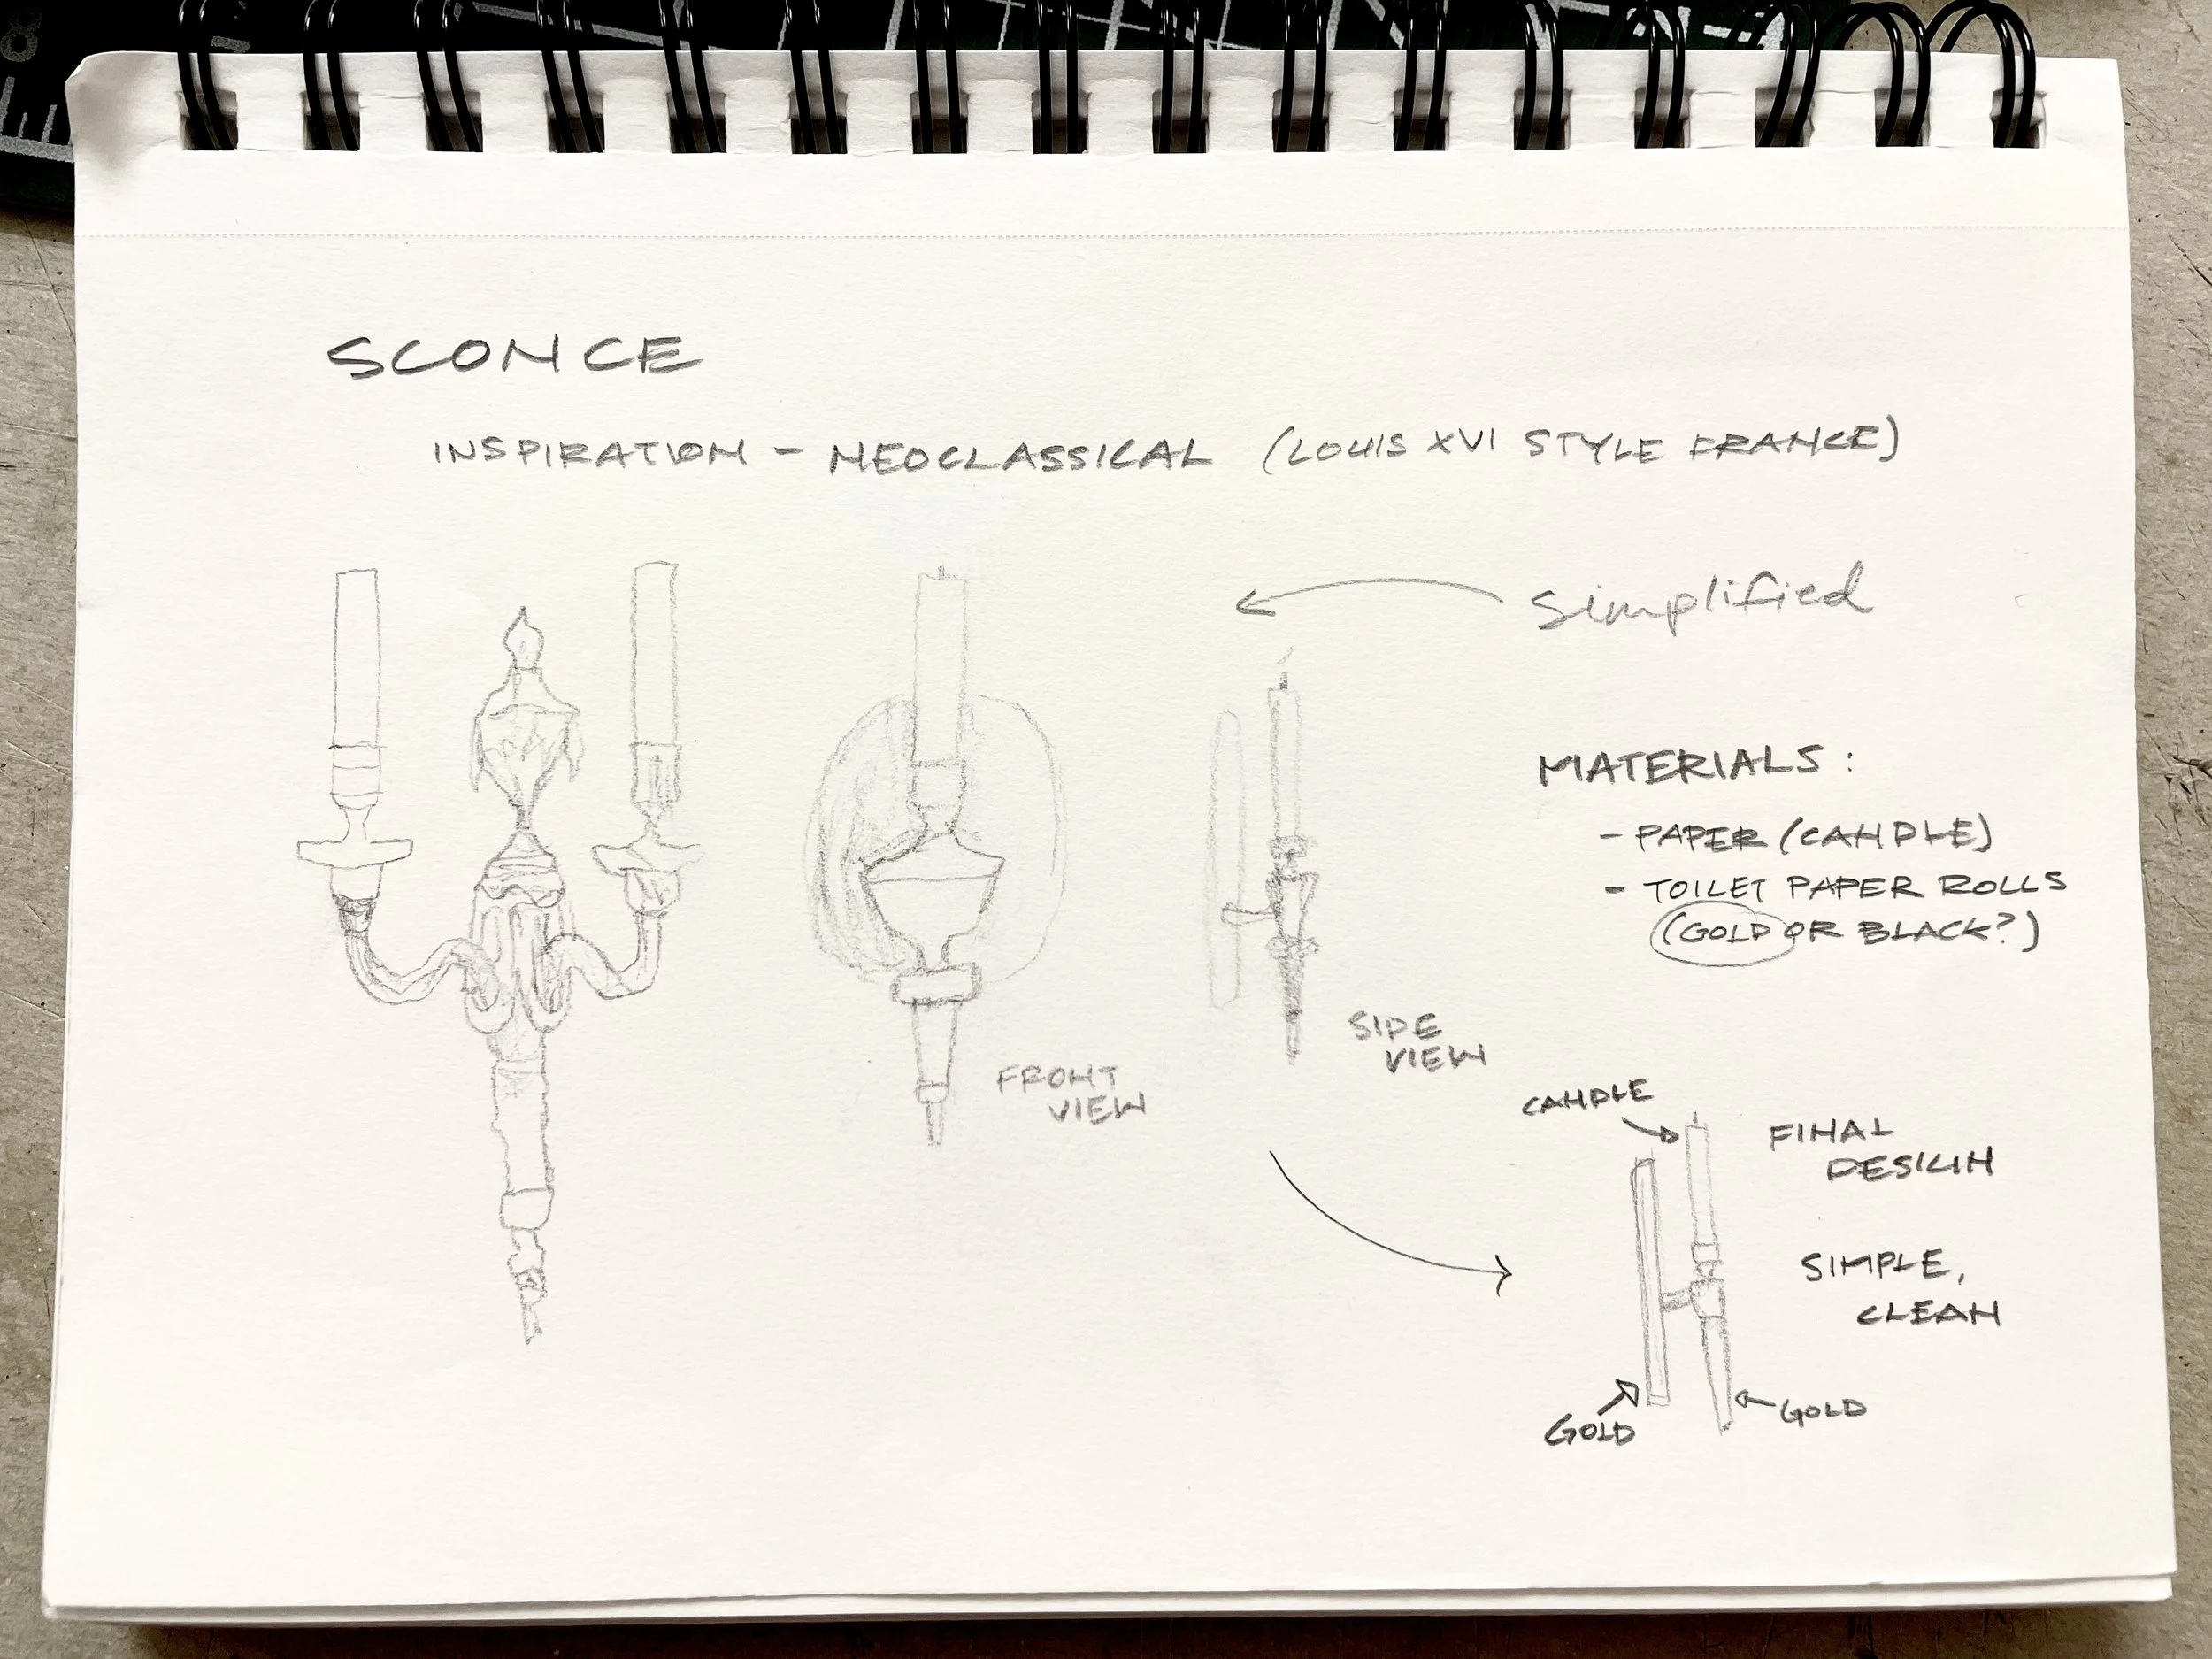 SCONCE
INSPIRATION - NEOCLASSICAL (LOUIS XVI STYLE FRANCE)
Simplified
MATERIALS:
- PAPER (CANDLE)
- TOILET PAPER ROLLS
(GOLD OR BLACK?)
FRONT
VIEW
SIDE
VIEW
CANDLE
FINAL
DESIGN
SIMPLE,
CLEAN
GOLD
GOLD